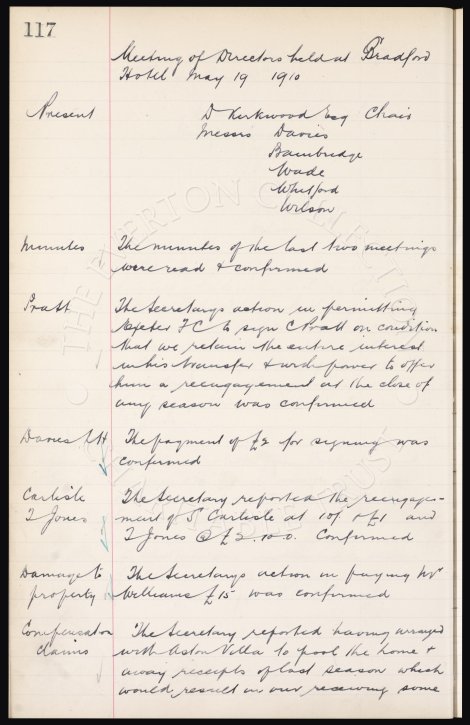 117
Meeting of Directors held at Bradford
Hotel May 19 1910
Present D Kirkwood Esq Chair
Messrs Davies
Bainbridge
Wade
Whitford
Wilson
Minutes The minutes of the last two meetings
were read & confirmed
Pratt The Secretarys action in permitting
Exeter FC to sign C Pratt on condition
that we retain the entire interest
in his transfer & with power to offer
him a reengagement at the close of
any season was confirmed
Davies The payment of £2 for signing was
confirmed
Carlisle The Secretary reported the reengage-
T Jones ment of Carlisle at 10/- & £1 and
T Jones @ £2.10.0. Confirmed
Damage to The Secretarys action in paying Mr
property Williams £15 was confirmed
Compensation The Secretary reported having arranged
Claims with Aston Villa to pool the home &
away receipts of last season which
would result in our receiving some
THE EVERTON COLLECTION
TRUST